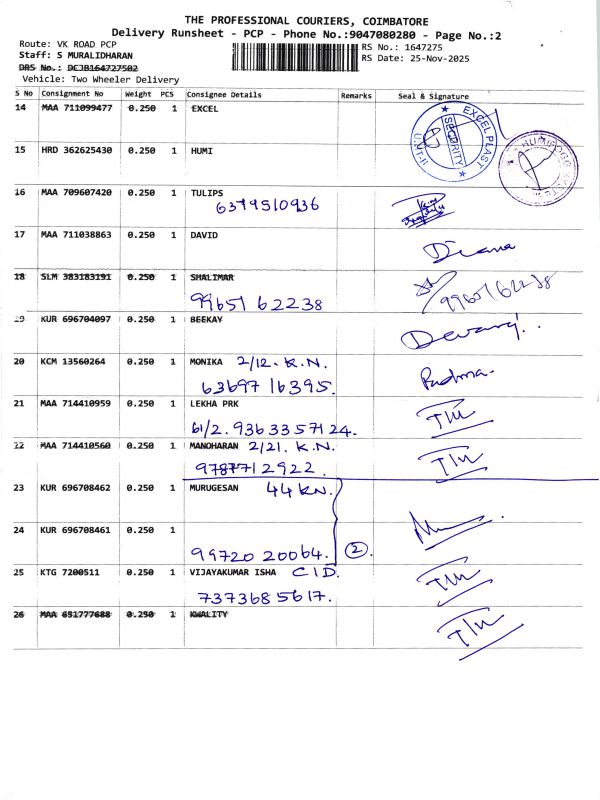 THE PROFESSIONAL COURIERS, COIMBATORE
Delivery Runsheet - PCP - Phone No.:9047080280 - Page No.:2
Route: VK ROAD PCP
Staff: S MURALIDHARAN
DRS No.: DCJB164727502
Vehicle: Two Wheeler Delivery
RS No.: 1647275
RS Date: 25-Nov-2025
S No Consignment No Weight PCS Consignee Details Remarks Seal & Signature
14 MAA 711099477 0.250 1 EXCEL
EXCEL PLAST
SECURITY
UNIT-II
15 HRD 362625430 0.250 1 HUMI
16 MAA 709607420 0.250 1 TULIPS
6379510936
17 MAA 711038863 0.250 1 DAVID Diana
18 SLM 383183191 0.250 1 SHALIMAR
9965162238 9965162238
19 KUR 696704097 0.250 1 BEEKAY Devangi.
20 KCM 13560264 0.250 1 MONIKA 2/12. K.N.
6369716395. Padma.
21 MAA 714410959 0.250 1 LEKHA PRK
61/2. 9363357124.
22 MAA 714410560 0.250 1 MANOHARAN 2/21. K.N.
9787712922.
23 KUR 696708462 0.250 1 MURUGESAN 44 KN.
24 KUR 696708461 0.250 1
9972020064. 2.
25 KTG 7200511 0.250 1 VIJAYAKUMAR ISHA CID.
7373685617.
26 MAA 651777688 0.250 1 KWALITY